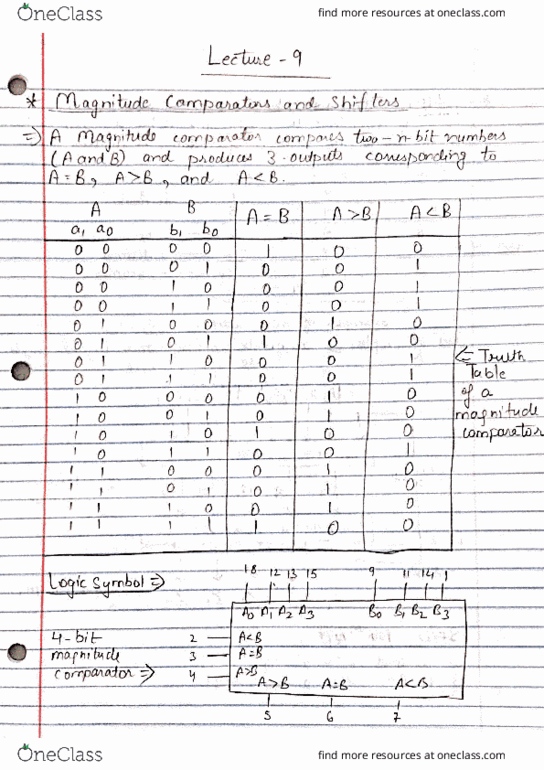 OneClass
find more resources at oneclass.com
Lecture - 9
* Magnitude Comparators and Shifters
⇒ A Magnitude comparator compares two-n-bit numbers
(A and B) and produces 3 outputs corresponding to
A = B, A > B, and A < B.
A B A = B A > B A < B
a₁ a₀ b₁ b₀
0 0 0 0 1 0 0
0 0 0 1 0 0 1
0 0 1 0 0 0 1
0 0 1 1 0 0 1
0 1 0 0 0 1 0
0 1 0 1 1 0 0
0 1 1 0 0 0 1
0 1 1 1 0 0 1
1 0 0 0 0 1 0
1 0 0 1 0 1 0
1 0 1 0 1 0 0
1 0 1 1 0 0 1
1 1 0 0 0 1 0
1 1 0 1 0 1 0
1 1 1 0 0 1 0
1 1 1 1 1 0 0
⇐ Truth
Table
of a
magnitude
comparator
Logic Symbol ⇒
18 12 13 15 9 11 14 1
A₀ A₁ A₂ A₃ B₀ B₁ B₂ B₃
4-bit
magnitude
comparator ⇒
2 A<B
3 A=B
4 A>B
A>B A=B A<B
5 6 7
OneClass
find more resources at oneclass.com